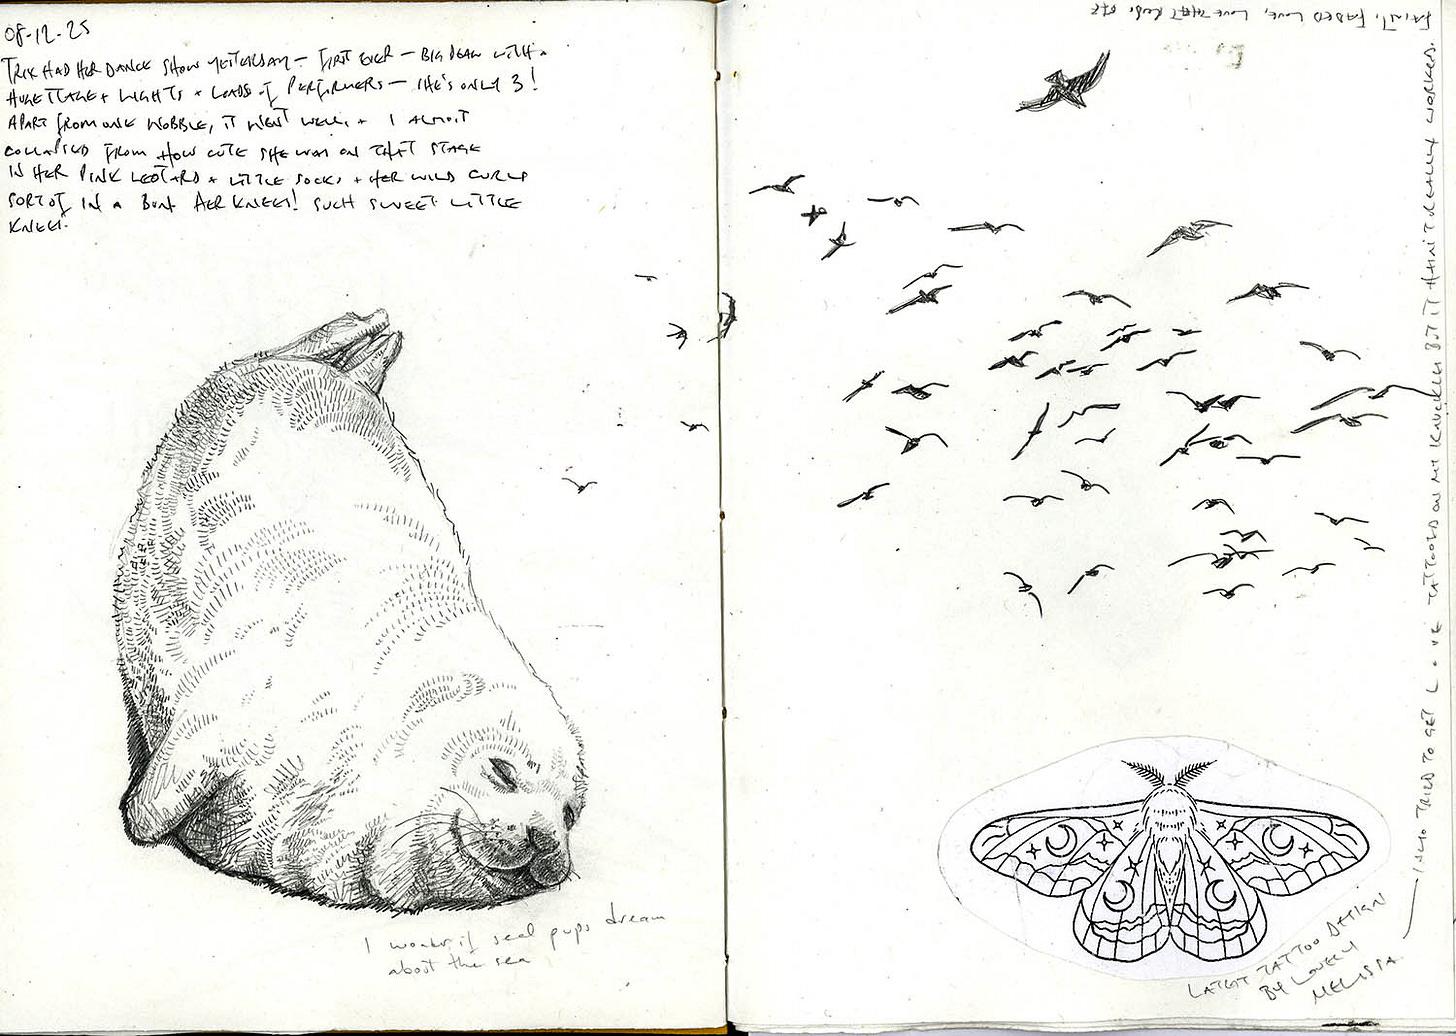 08-12-25
TRIX HAD HER DANCE SHOW YESTERDAY – FIRST EVER – BIG DEAL WITH A
HUGE STAGE + LIGHTS + LOADS of PERFORMERS – SHE'S ONLY 3!
APART FROM ONE WOBBLE, IT WENT WELL, + I ALMOST
COLLAPSED FROM HOW CUTE SHE WAS ON THAT STAGE
IN HER PINK LEOTARD + LITTLE SOCKS + HER WILD CURLS
SORT OF IN A BUN. HER KNEES! SUCH SWEET LITTLE
KNEES.
I wonder if seal pups dream
about the sea
LATEST TATTOO DESIGN
BY LOVELY
MELISSA.
– I ALSO TRIED TO GET L O VE TATTOOED ON MY KNUCKLES BUT IT HASN'T REALLY WORKED.
FAINT, FADED LOVE, LOVE THAT RUBS OFF